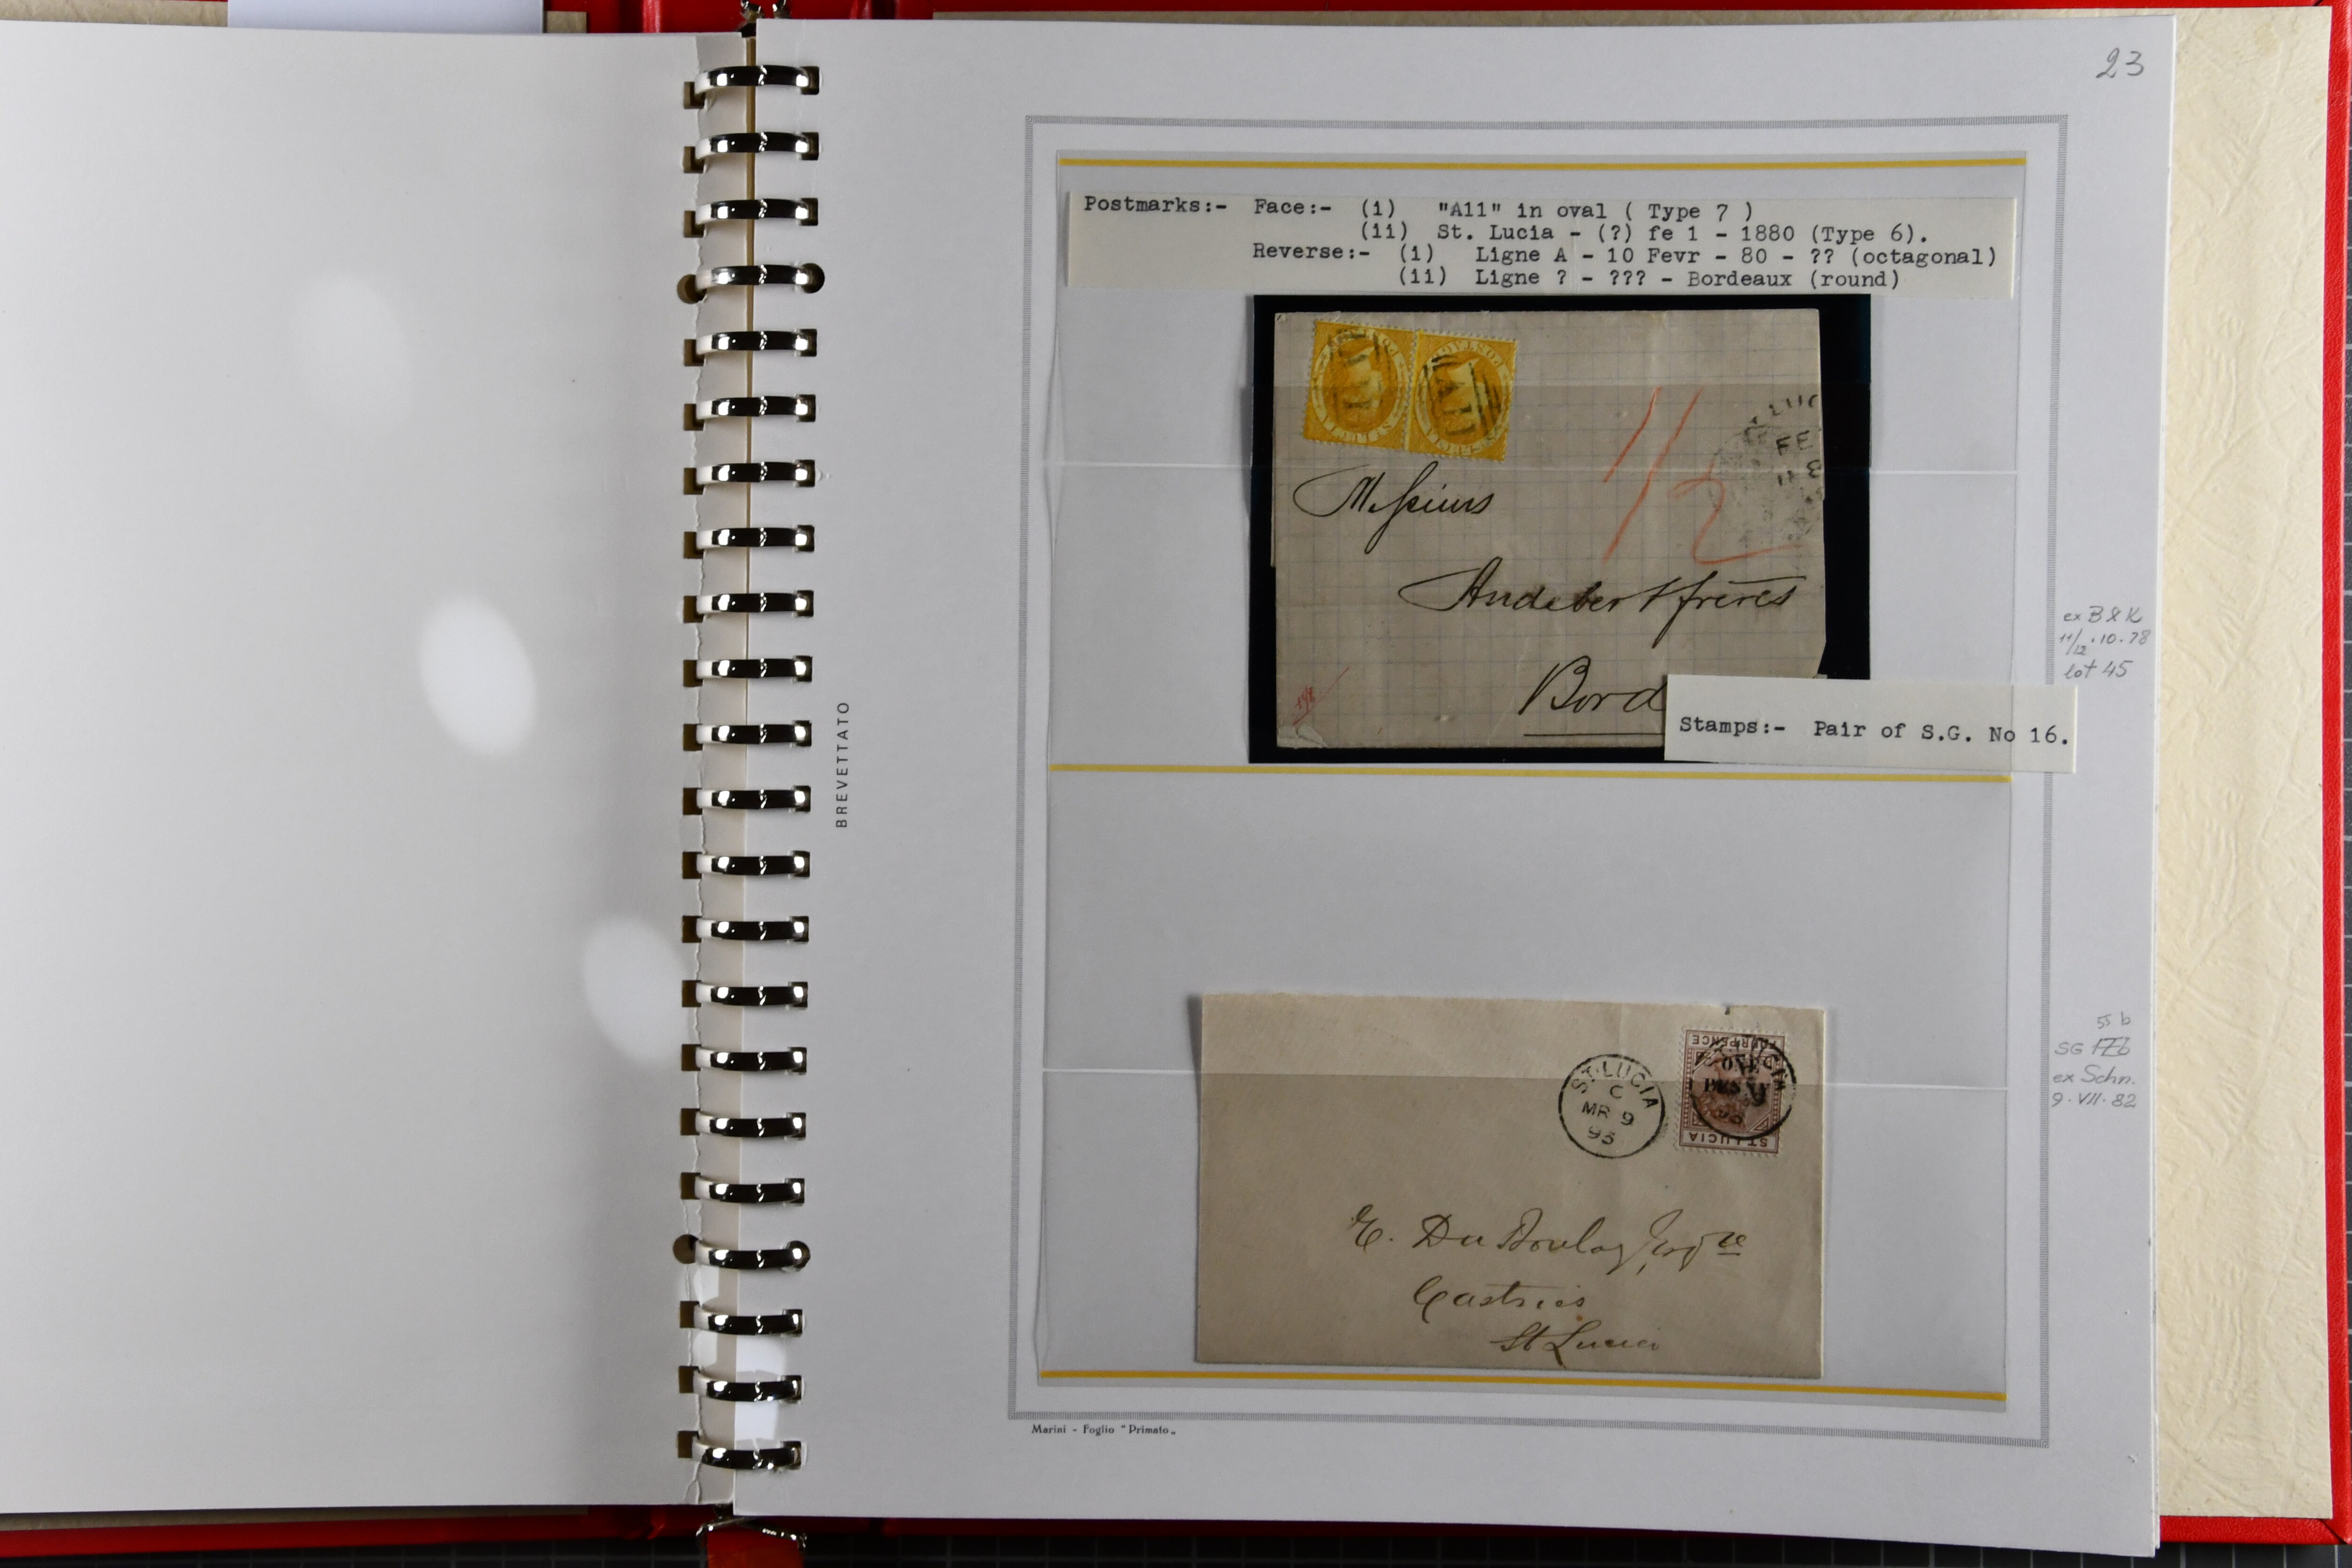 23
Postmarks:- Face:- (i) "A11" in oval ( Type 7 )
(ii) St. Lucia - (?) fe 1 - 1880 (Type 6).
Reverse:- (i) Ligne A - 10 Fevr - 80 - ?? (octagonal)
(ii) Ligne ? - ??? - Bordeaux (round)
LUC
FE
Messieurs
Audebert frères
Bord
Stamps:- Pair of S.G. No 16.
ex B & K
11/12.10.78
lot 45
BREVETTATO
ST. LUCIA
C
MR 9
93
FOURPENCE
ONE
ST. LUCIA
E. Du Boulay
Castries
St Lucia
55 b
SG
ex Schn.
9.VII.82
Marini - Foglio "Primato„